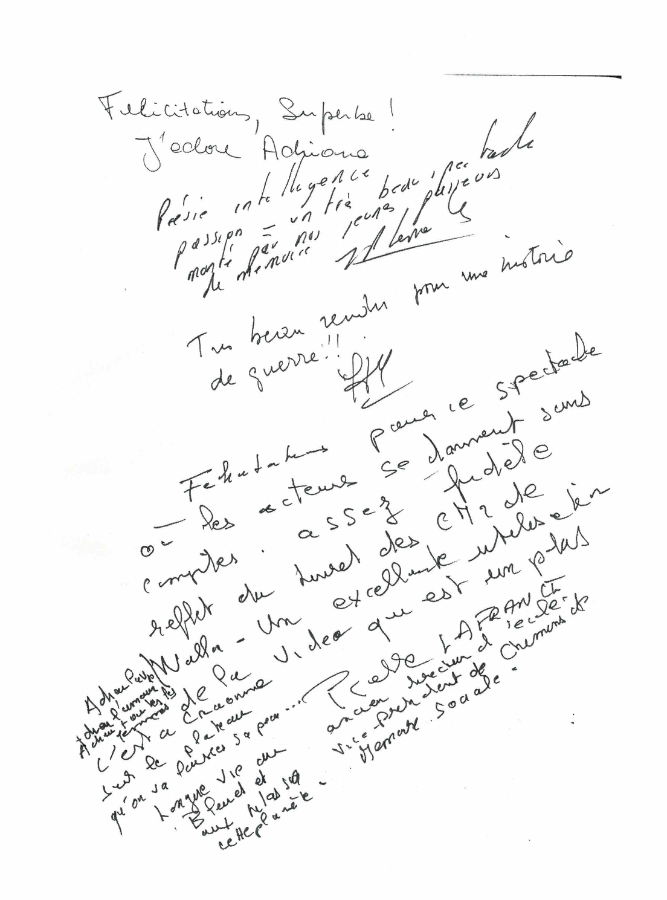 Félicitations, Superbe !
J'adore Adriana
Poésie intelligence
passion = un très beau spectacle
monté par nos jeunes passeurs
de mémoire
Très beau rendu pour une histoire
de guerre !!
Felicitations pour ce spectacle
où les acteurs se donnent sans
compter. assez fidèle
reflet du livret des CM2 de
Walla - Un excellente utilisation
de la video qui est un plus
Pierre LAFRANCE
ancien directeur d'école.
vice président de Chemins de
Memoire Sociale.
Adieu la vie
Adieu l'amour
Adieu toutes les
femmes
C'est à Craonne
sur le plateau
qu'on va laisser sa peau....
Longue vie au
Bleuet et
aux
cette planète.